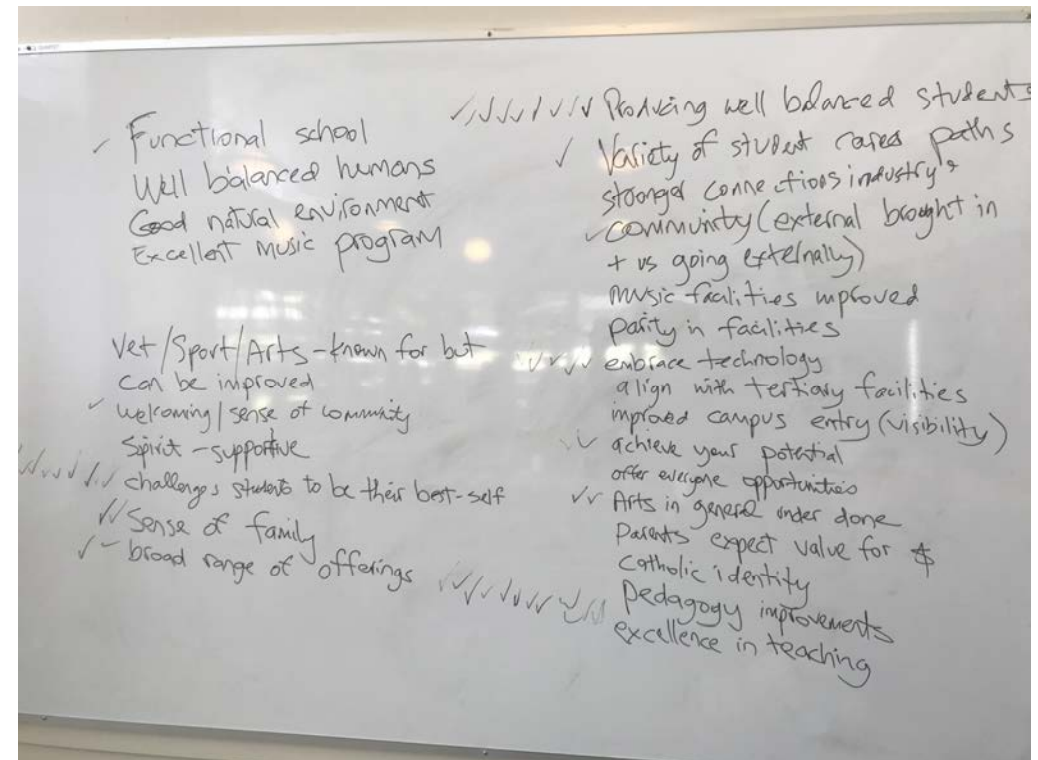 ✓ Functional school
Well balanced humans
Good natural environment
Excellent music program
Vet/Sport/Arts - known for but
can be improved
✓ welcoming/sense of community
Spirit - supportive
✓✓✓✓✓✓ challenges students to be their best-self
✓✓ Sense of family
✓✓ broad range of offerings
✓✓✓✓✓✓✓ Producing well balanced students
✓ Variety of student career paths
stronger connections industry &
✓ community (external brought in
+ us going externally)
music facilities improved
parity in facilities
✓✓✓✓ embrace technology
align with tertiary facilities
improved campus entry (visibility)
✓✓ achieve your potential
offer everyone opportunities
✓✓ Arts in general under done
Parents expect value for $
Catholic identity
✓✓✓✓✓✓✓✓✓✓ Pedagogy improvements
excellence in teaching